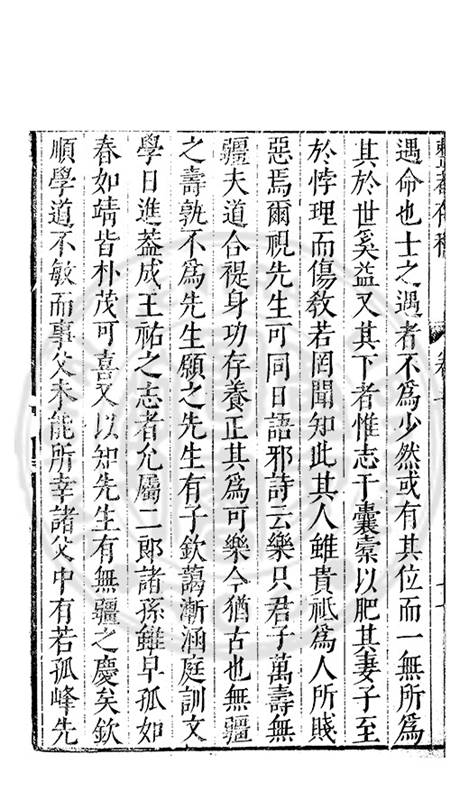 遇命也士之遇者不爲少然或有其位而一無所爲
其於世奚益又其下者惟志于囊橐以肥其妻子至
於悖理而傷敎若罔聞知此其人雖貴祗爲人所賤
惡焉爾視先生可同日語邪詩云樂只君子萬壽無
疆夫道合禔身功存養正其爲可樂今猶古也無疆
之壽孰不爲先生願之先生有子欽藹漸涵庭訓文
學日進葢成王祐之志者允屬二郎諸孫雖早孤如
春如靖皆朴茂可喜又以知先生有無疆之慶矣欽
順學道不敏而事父未能所幸諸父中有若孤峰先